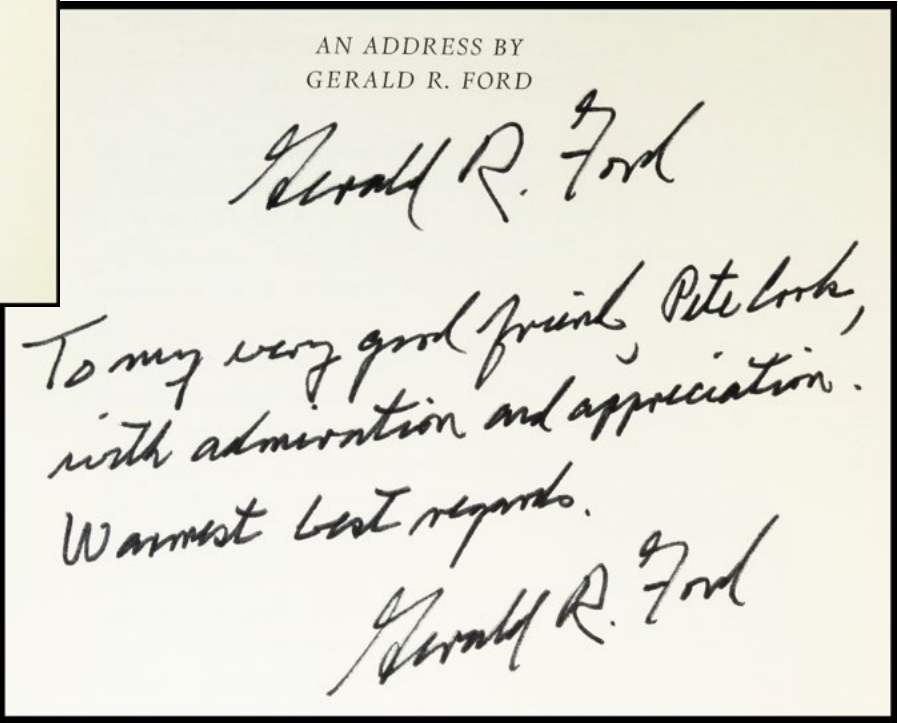 AN ADDRESS BY
GERALD R. FORD
Gerald R. Ford
To my very good friend, Pete Cook,
with admiration and appreciation.
Warmest best regards.
Gerald R. Ford